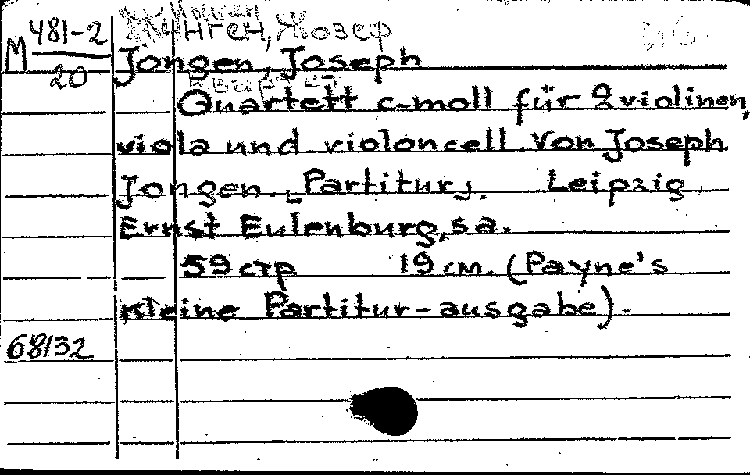 M 481-2
20
Жозеф
Jongen, Joseph
Quartett c-moll für 2 violinen,
viola und violoncell. Von Joseph
Jongen. [Partitur]. Leipzig,
Ernst Eulenburg, s.a.
59 стр 19 см. (Payne's
kleine Partitur-ausgabe).
68132